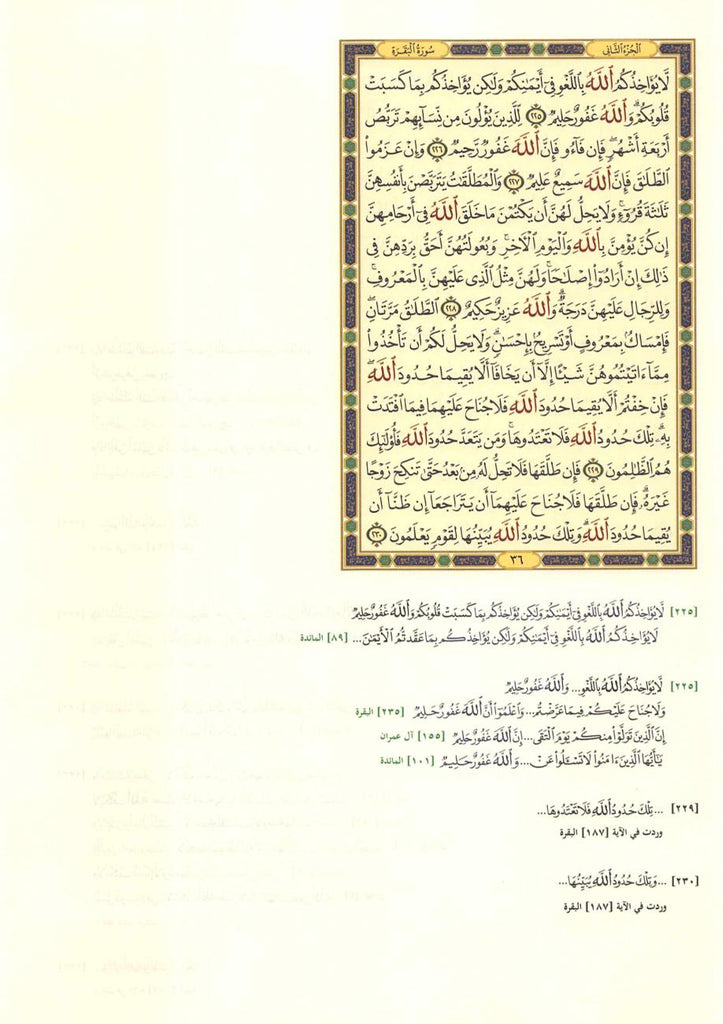 الجزء الثاني
سورة البقرة
لَّا يُؤَاخِذُكُمُ ٱللَّهُ بِٱللَّغْوِ فِىٓ أَيْمَـٰنِكُمْ وَلَـٰكِن يُؤَاخِذُكُم بِمَا كَسَبَتْ
قُلُوبُكُمْ ۗ وَٱللَّهُ غَفُورٌ حَلِيمٌ ٢٢٥ لِّلَّذِينَ يُؤْلُونَ مِن نِّسَآئِهِمْ تَرَبُّصُ
أَرْبَعَةِ أَشْهُرٍ ۖ فَإِن فَآءُو فَإِنَّ ٱللَّهَ غَفُورٌ رَّحِيمٌ ٢٢٦ وَإِنْ عَزَمُوا۟
ٱلطَّلَـٰقَ فَإِنَّ ٱللَّهَ سَمِيعٌ عَلِيمٌ ٢٢٧ وَٱلْمُطَلَّقَـٰتُ يَتَرَبَّصْنَ بِأَنفُسِهِنَّ
ثَلَـٰثَةَ قُرُوٓءٍ ۚ وَلَا يَحِلُّ لَهُنَّ أَن يَكْتُمْنَ مَا خَلَقَ ٱللَّهُ فِىٓ أَرْحَامِهِنَّ
إِن كُنَّ يُؤْمِنَّ بِٱللَّهِ وَٱلْيَوْمِ ٱلْـَٔاخِرِ ۚ وَبُعُولَتُهُنَّ أَحَقُّ بِرَدِّهِنَّ فِى
ذَٰلِكَ إِنْ أَرَادُوٓا۟ إِصْلَـٰحًا ۚ وَلَهُنَّ مِثْلُ ٱلَّذِى عَلَيْهِنَّ بِٱلْمَعْرُوفِ ۚ
وَلِلرِّجَالِ عَلَيْهِنَّ دَرَجَةٌ ۗ وَٱللَّهُ عَزِيزٌ حَكِيمٌ ٢٢٨ ٱلطَّلَـٰقُ مَرَّتَانِ ۖ
فَإِمْسَاكٌۢ بِمَعْرُوفٍ أَوْ تَسْرِيحٌۢ بِإِحْسَـٰنٍ ۗ وَلَا يَحِلُّ لَكُمْ أَن تَأْخُذُوا۟
مِمَّآ ءَاتَيْتُمُوهُنَّ شَيْـًٔا إِلَّآ أَن يَخَافَآ أَلَّا يُقِيمَا حُدُودَ ٱللَّهِ ۖ
فَإِنْ خِفْتُمْ أَلَّا يُقِيمَا حُدُودَ ٱللَّهِ فَلَا جُنَاحَ عَلَيْهِمَا فِيمَا ٱفْتَدَتْ
بِهِۦ ۗ تِلْكَ حُدُودُ ٱللَّهِ فَلَا تَعْتَدُوهَا ۚ وَمَن يَتَعَدَّ حُدُودَ ٱللَّهِ فَأُو۟لَـٰٓئِكَ
هُمُ ٱلظَّـٰلِمُونَ ٢٢٩ فَإِن طَلَّقَهَا فَلَا تَحِلُّ لَهُۥ مِنۢ بَعْدُ حَتَّىٰ تَنكِحَ زَوْجًا
غَيْرَهُۥ ۗ فَإِن طَلَّقَهَا فَلَا جُنَاحَ عَلَيْهِمَآ أَن يَتَرَاجَعَآ إِن ظَنَّآ أَن
يُقِيمَا حُدُودَ ٱللَّهِ ۗ وَتِلْكَ حُدُودُ ٱللَّهِ يُبَيِّنُهَا لِقَوْمٍ يَعْلَمُونَ ٢٣٠
٣٦
[٢٢٥] لَّا يُؤَاخِذُكُمُ ٱللَّهُ بِٱللَّغْوِ فِىٓ أَيْمَـٰنِكُمْ وَلَـٰكِن يُؤَاخِذُكُم بِمَا كَسَبَتْ قُلُوبُكُمْ وَٱللَّهُ غَفُورٌ حَلِيمٌ
لَا يُؤَاخِذُكُمُ ٱللَّهُ بِٱللَّغْوِ فِىٓ أَيْمَـٰنِكُمْ وَلَـٰكِن يُؤَاخِذُكُم بِمَا عَقَّدتُّمُ ٱلْأَيْمَـٰنَ... [٨٩] المائدة
[٢٢٥] لَّا يُؤَاخِذُكُمُ ٱللَّهُ بِٱللَّغْوِ... وَٱللَّهُ غَفُورٌ حَلِيمٌ
وَلَا جُنَاحَ عَلَيْكُمْ فِيمَا عَرَّضْتُم... وَٱعْلَمُوٓا۟ أَنَّ ٱللَّهَ غَفُورٌ حَلِيمٌ [٢٣٥] البقرة
إِنَّ ٱلَّذِينَ تَوَلَّوْا۟ مِنكُمْ يَوْمَ ٱلْتَقَى... إِنَّ ٱللَّهَ غَفُورٌ حَلِيمٌ [١٥٥] آل عمران
يَـٰٓأَيُّهَا ٱلَّذِينَ ءَامَنُوا۟ لَا تَسْـَٔلُوا۟ عَنْ... وَٱللَّهُ غَفُورٌ حَلِيمٌ [١٠١] المائدة
[٢٢٩] ...تِلْكَ حُدُودُ ٱللَّهِ فَلَا تَعْتَدُوهَا...
وردت في الآية [١٨٧] البقرة
[٢٣٠] ...وَتِلْكَ حُدُودُ ٱللَّهِ يُبَيِّنُهَا...
وردت في الآية [١٨٧] البقرة